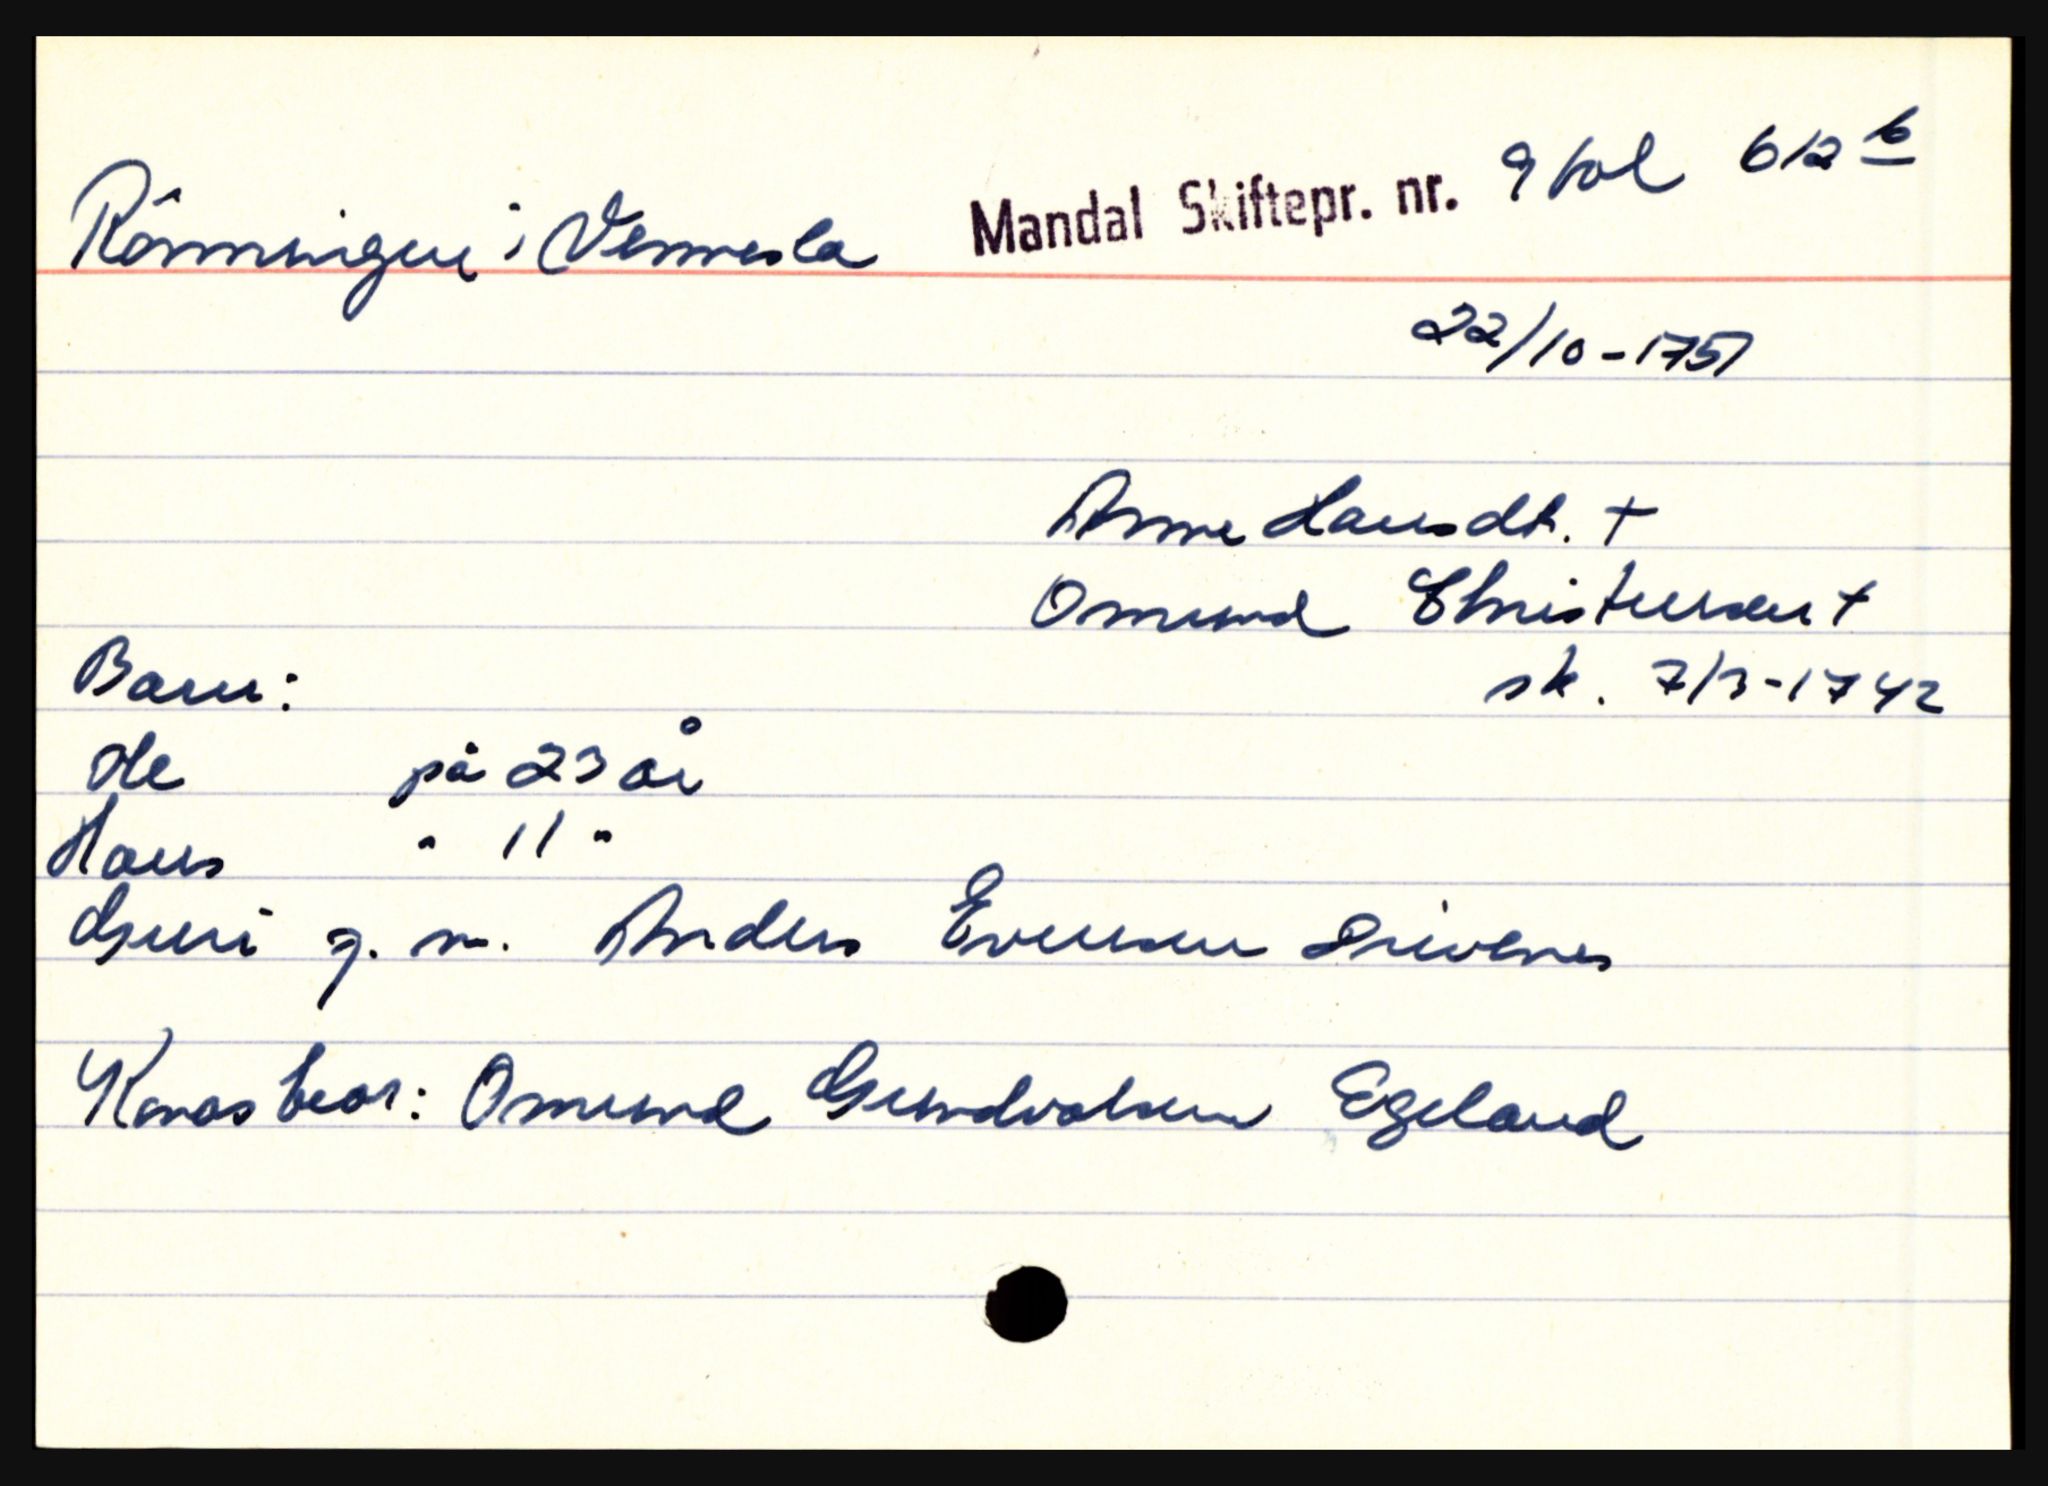 Rönningen i Vennesla Mandal Skiftepr. nr. 9 fol 612 b
22/10-1751
Anne Hansdt. +
Omund Christensen +
Barn: sk. 7/3-1742
Ole på 23 år
Hans " 11 "
Guri g. m. Anders Evensen Drivenes
Konas beor: Omund Gundvalsen Egeland